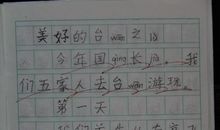 美好的台wān之旅
今年国qìng长假,我
们五家人去台wān游玩。
第一天